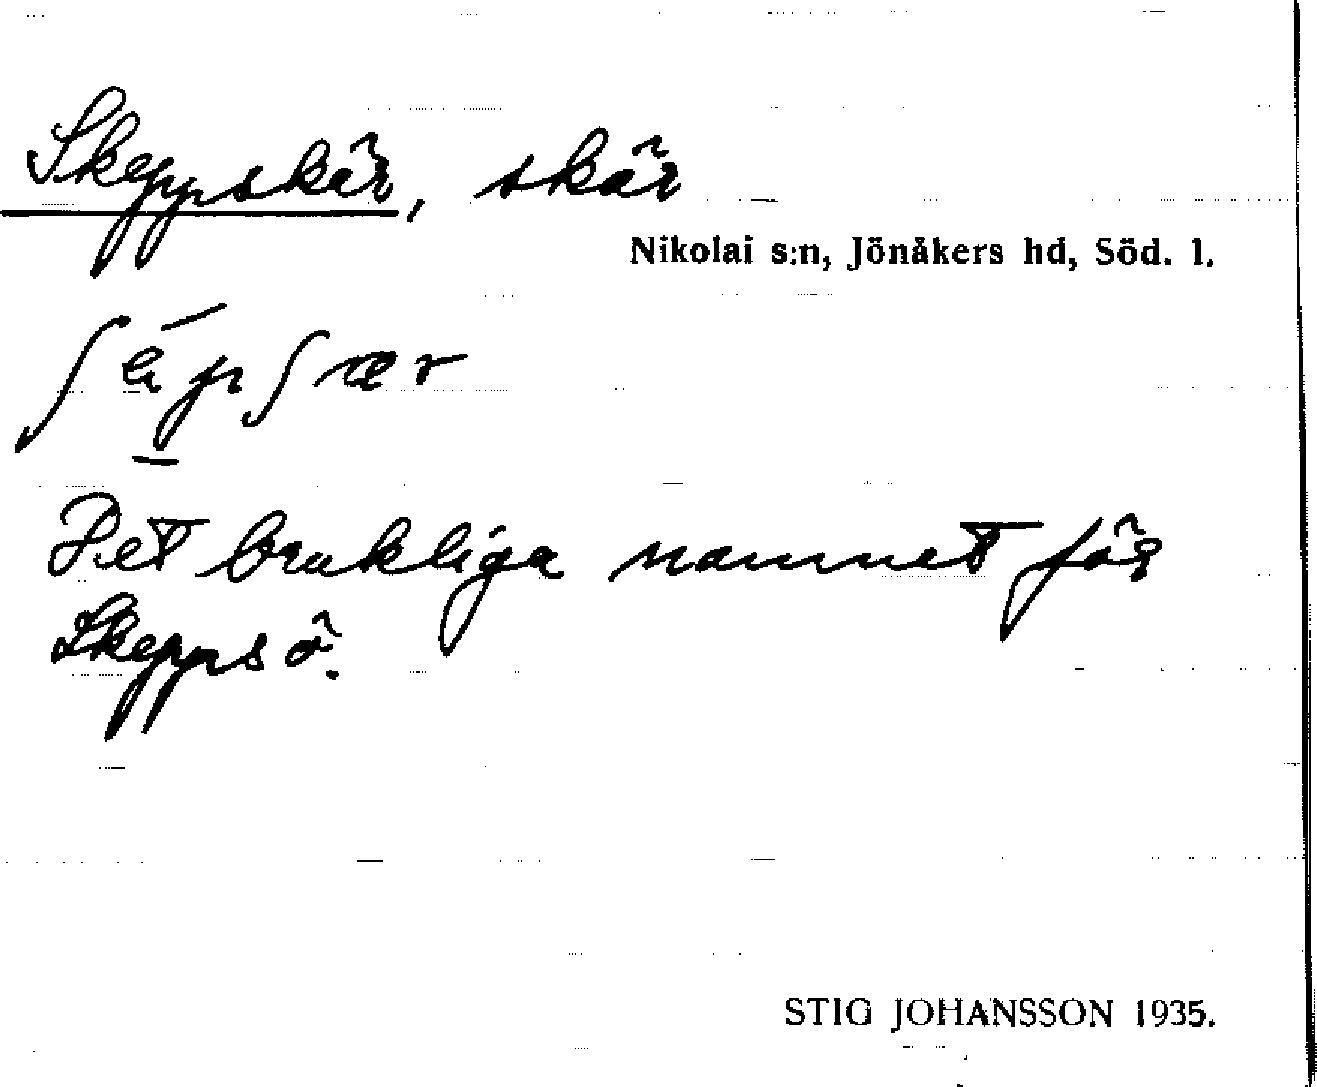 Skeppskär, skär
Nikolai s:n, Jönåkers hd, Söd. l.
ʃép̱ʃær
Det brukliga namnet för
Skeppsö.
STIG JOHANSSON 1935.